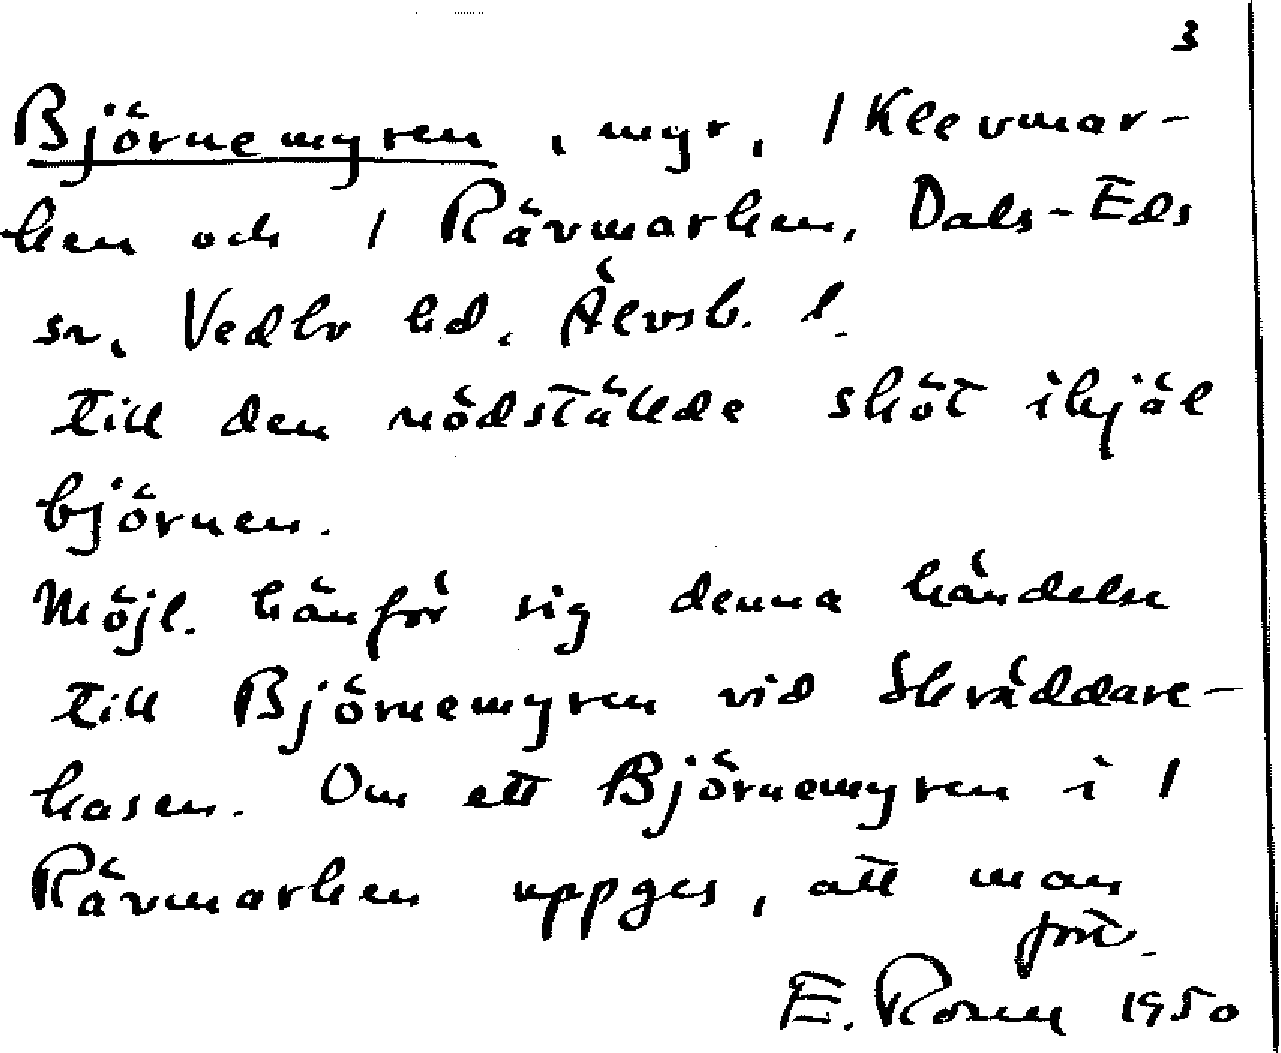 3
Björnemyren, myr, 1 Klevmar-
ken och 1 Rävmarken, Dals-Eds
sn, Vedbo hd. Älvsb. l.
till den nödställde sköt ihjäl
björnen.
Möjl. hänför sig denna händelse
till Björnemyren vid Skräddare-
kasen. Om ett Björnemyren i 1
Rävmarken uppges, att man
fort.
E. Rosell 1950